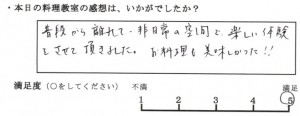 ・本日の料理教室の感想は、いかがでしたか？
普段から離れて・非日常の空間と、楽しい体験
をさせて頂きました。お料理も美味しかった!!
満足度（○をしてください） 不満 満足
1 2 3 4 5